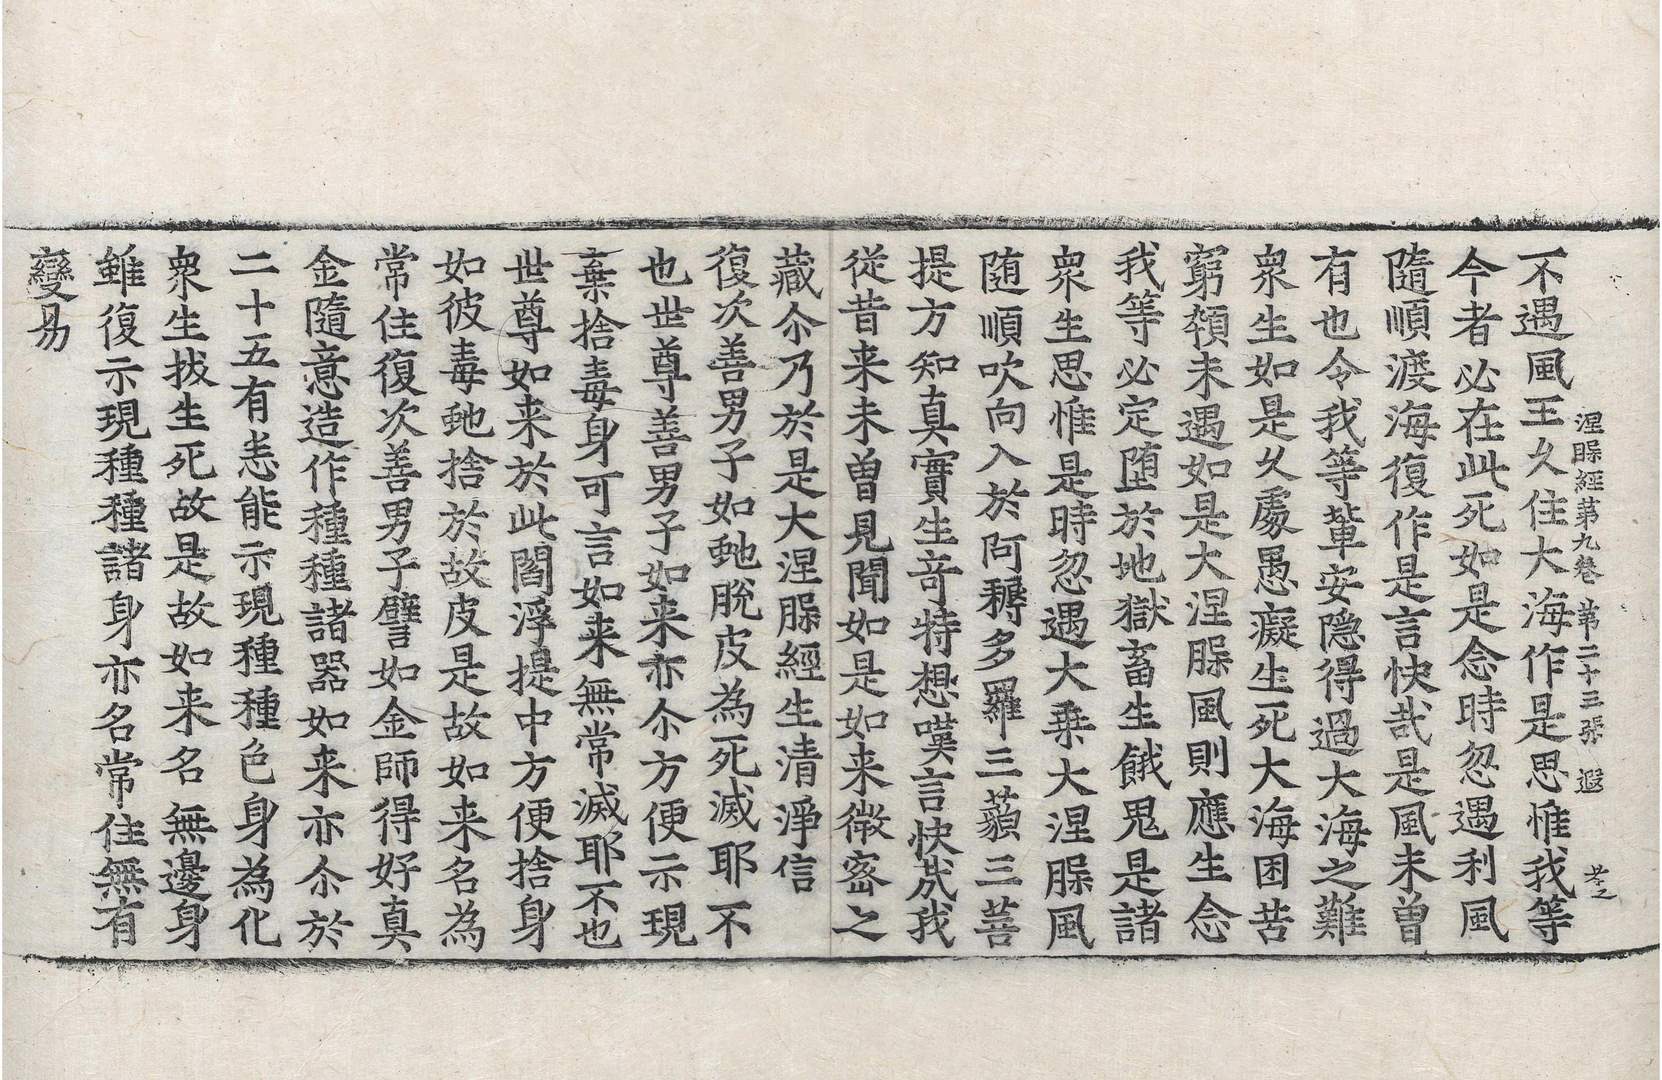 涅槃經第九卷 第二十三張 遐
不遇風王久住大海作是思惟我等
今者必在此死如是念時忽遇利風
隨順渡海復作是言快哉是風未曽
有也令我等輩安隠得過大海之難
衆生如是久處愚癡生死大海困苦
窮顇未遇如是大涅槃風則應生念
我等必定墮於地獄畜生餓鬼是諸
衆生思惟是時忽遇大乗大涅槃風
随順吹向入於阿耨多羅三藐三菩
提方知真實生竒特想嘆言快㢤我
從昔来未曽見聞如是如来微宻之
藏尒乃於是大涅槃經生清淨信
復次善男子如虵脫皮為死滅耶不
也世尊善男子如来亦尒方便示現
棄捨毒身可言如来無常滅耶不也
世尊如来於此閻浮提中方便捨身
如彼毒虵捨於故皮是故如来名為
常住復次善男子譬如金師得好真
金隨意造作種種諸器如来亦尒於
二十五有悉能示現種種色身為化
衆生拔生死故是故如来名無邊身
雖復示現種種諸身亦名常住無有
變易